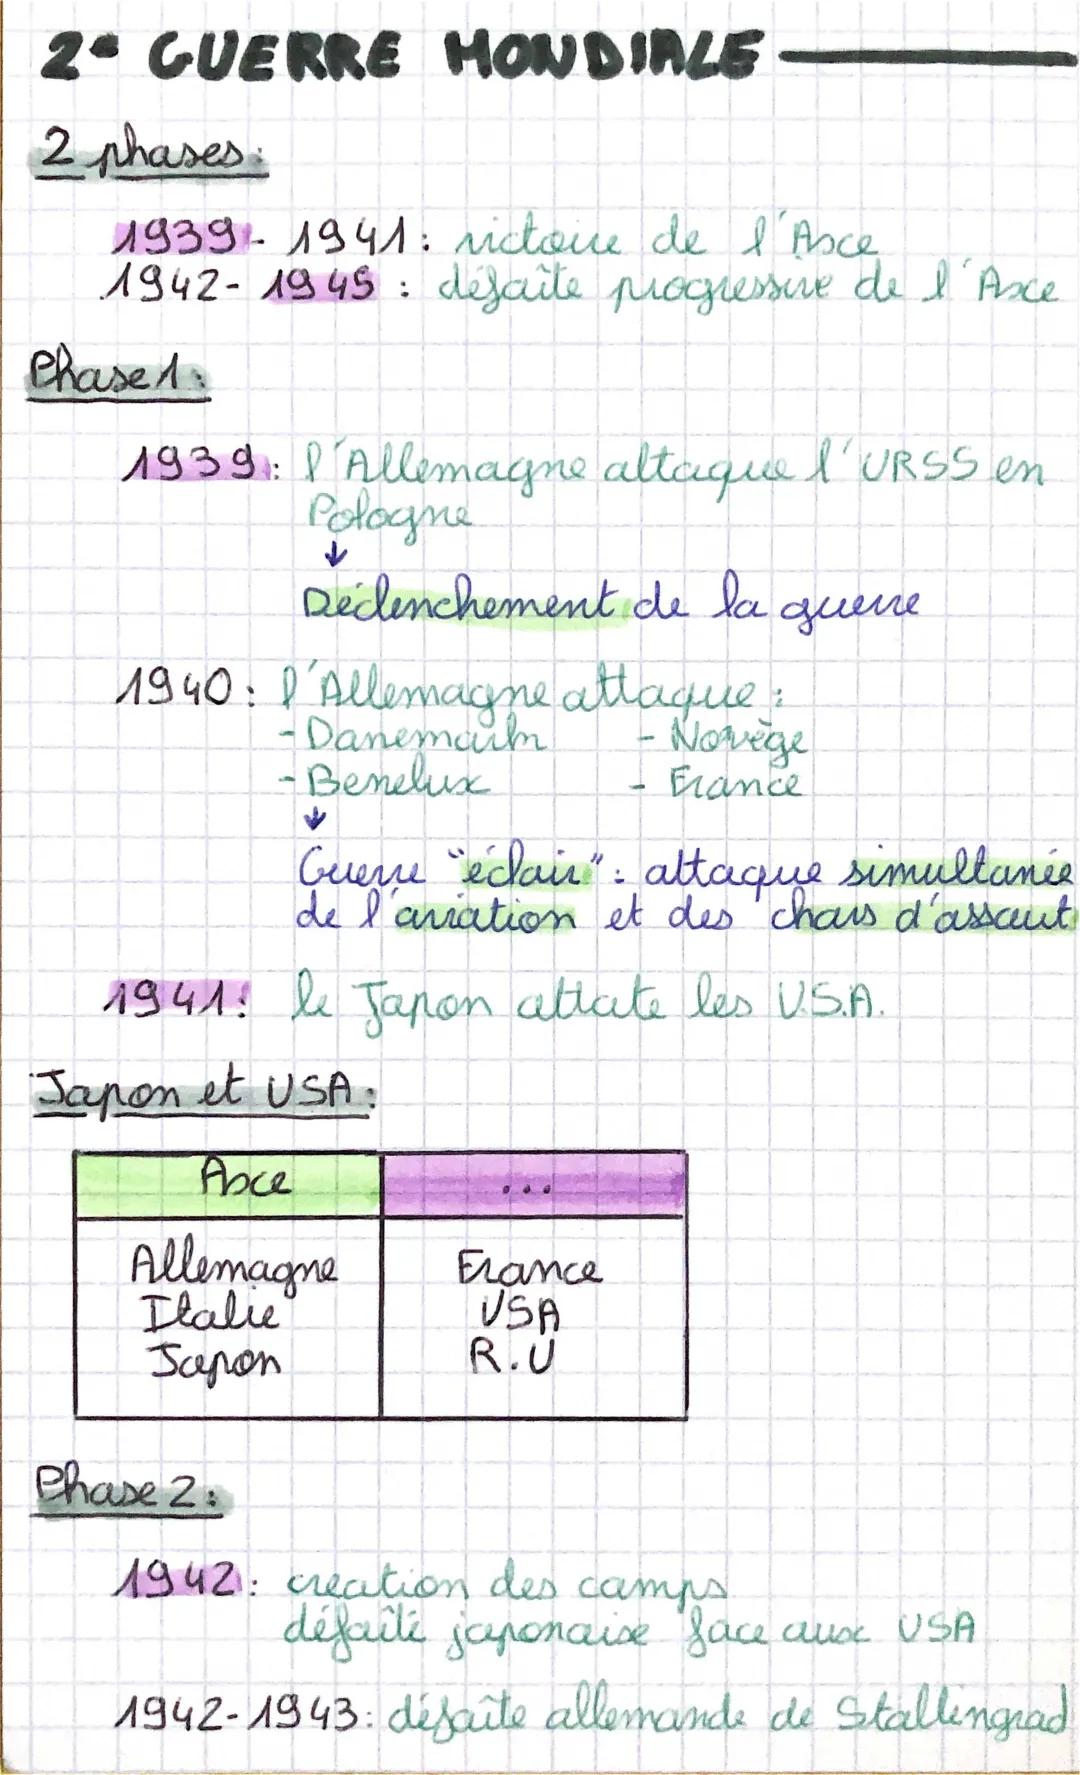 2e GUERRE MONDIALE
2 phases:
1939-1941: victoire de l'Axe
1942-1945: défaite progressive de l'Axe
Phase 1:
1939: l'Allemagne attaque l'URSS en
Pologne
↓
Déclenchement de la guerre
1940: l'Allemagne attaque:
-Danemark - Norvège
-Benelux - France
↓
Guerre "éclair": attaque simultanée
de l'aviation et des chars d'assaut
1941: le Japon attate les U.S.A.
Japon et USA:
Axe ...
Allemagne France
Italie USA
Japon R.U
Phase 2:
1942: création des camps
défaite japonaise face aux USA
1942-1943: défaite allemande de Stallingrad